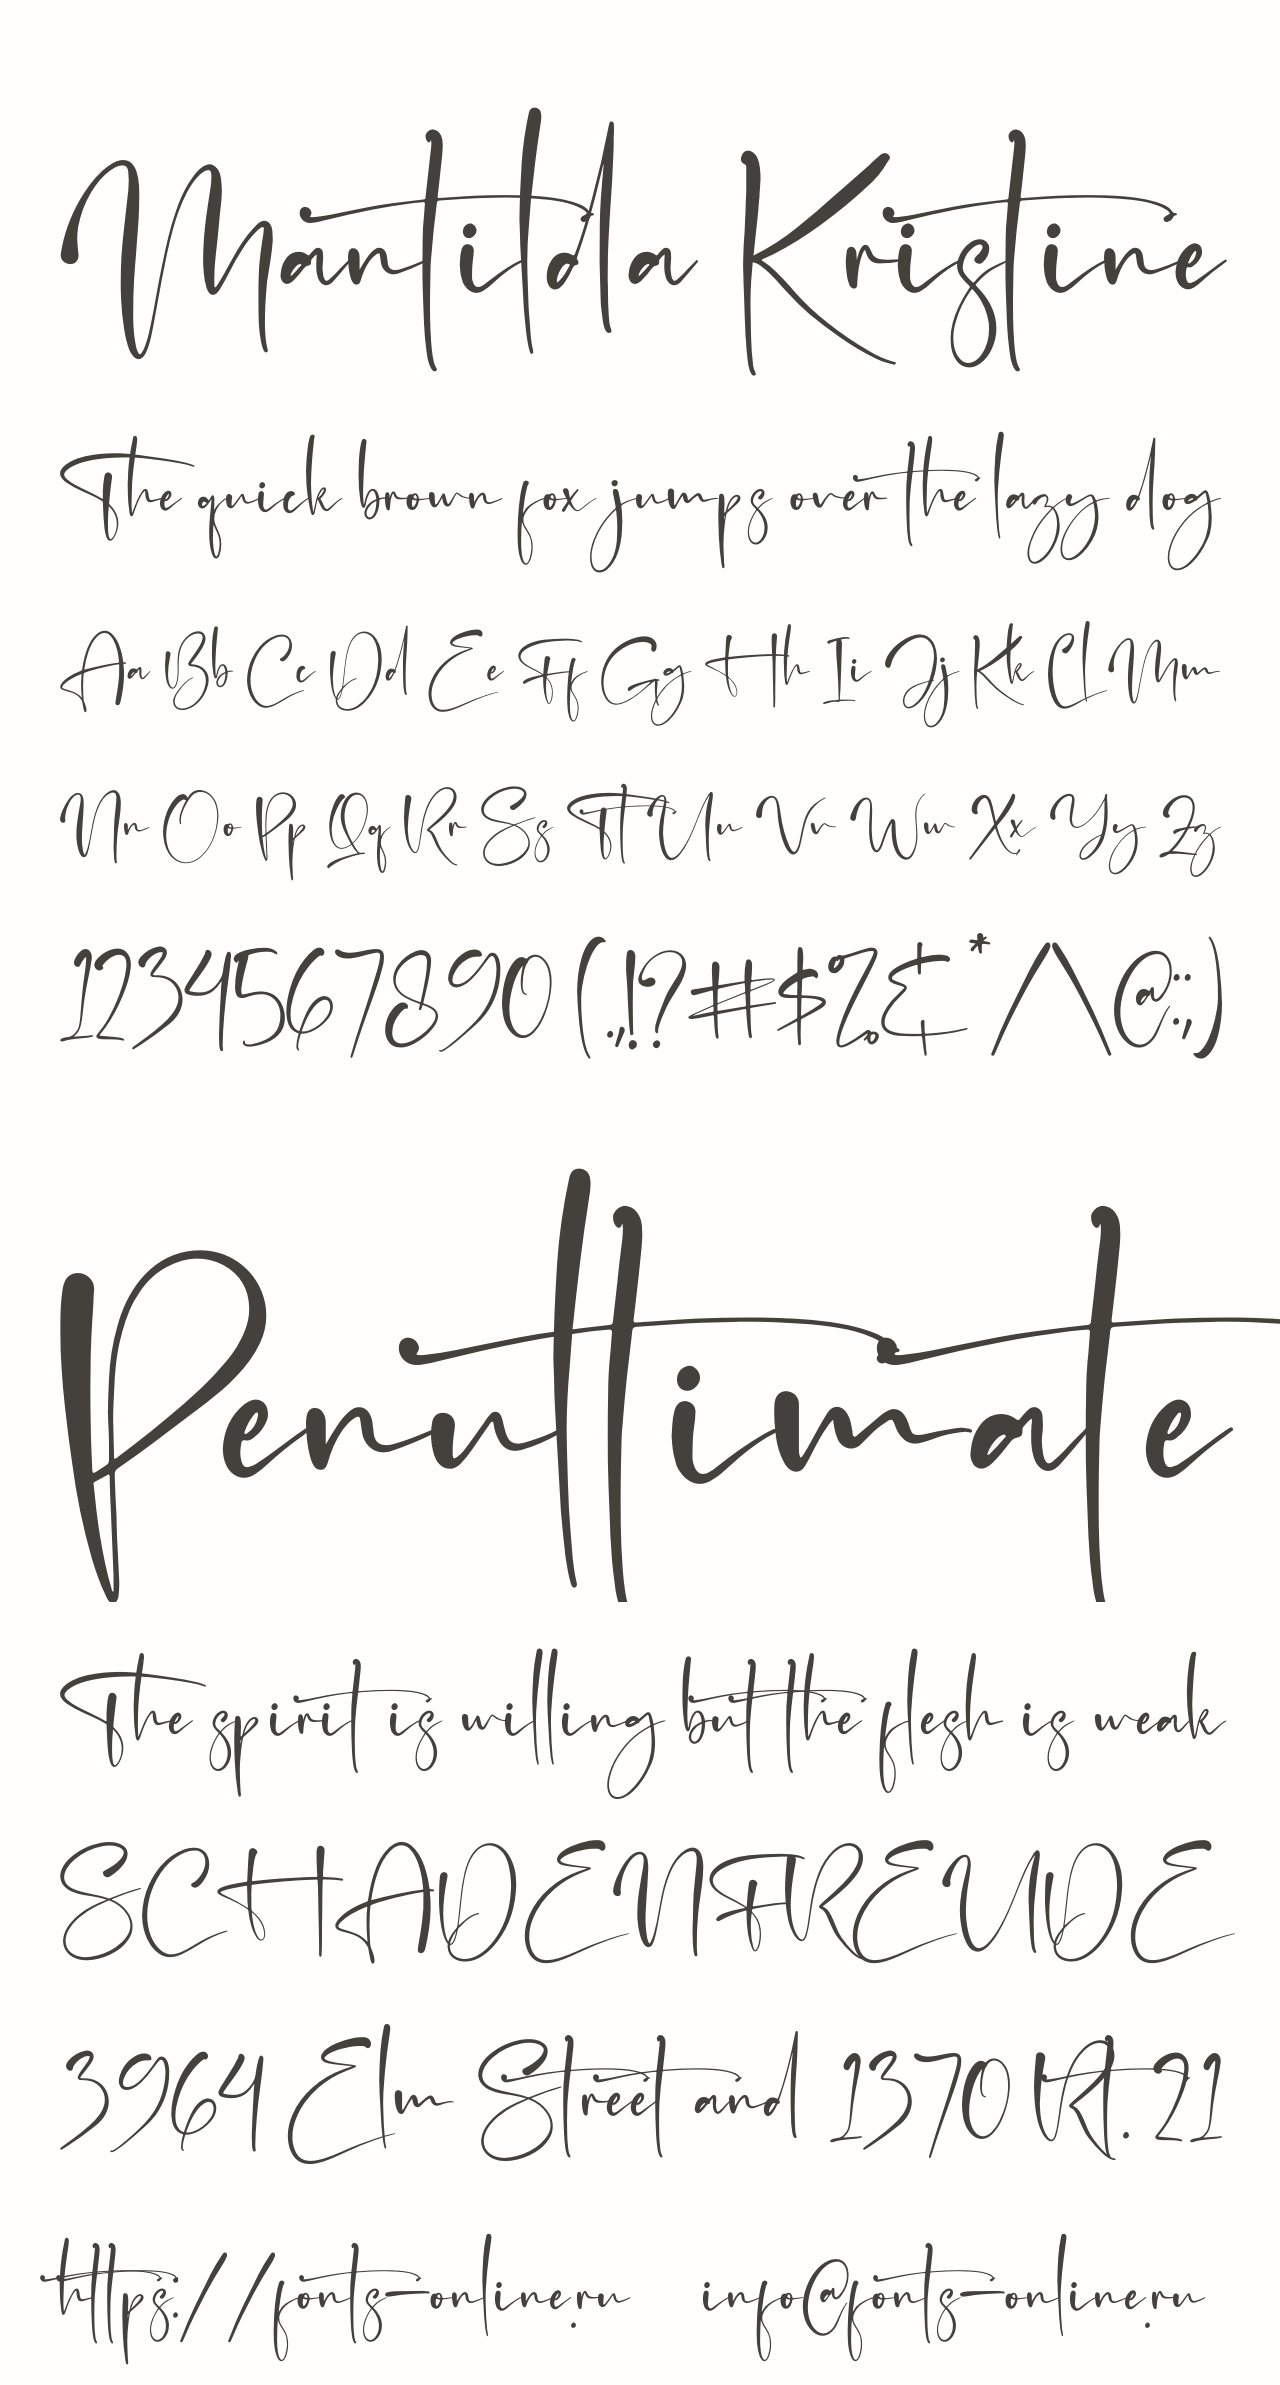 Mantilda Kristine
The quick brown fox jumps over the lazy dog
Aa Bb Cc Dd Ee Ff Gg Hh Ii Jj Kk Ll Mm
Nn Oo Pp Qq Rr Ss Tt Uu Vv Ww Xx Yy Zz
1234567890 (.,!?#$%&*/\@:;)
Penultimate
The spirit is willing but the flesh is weak
SCHADENFREUDE
3964 Elm Street and 1370 Rt. 21
https://fonts-online.ru info@fonts-online.ru